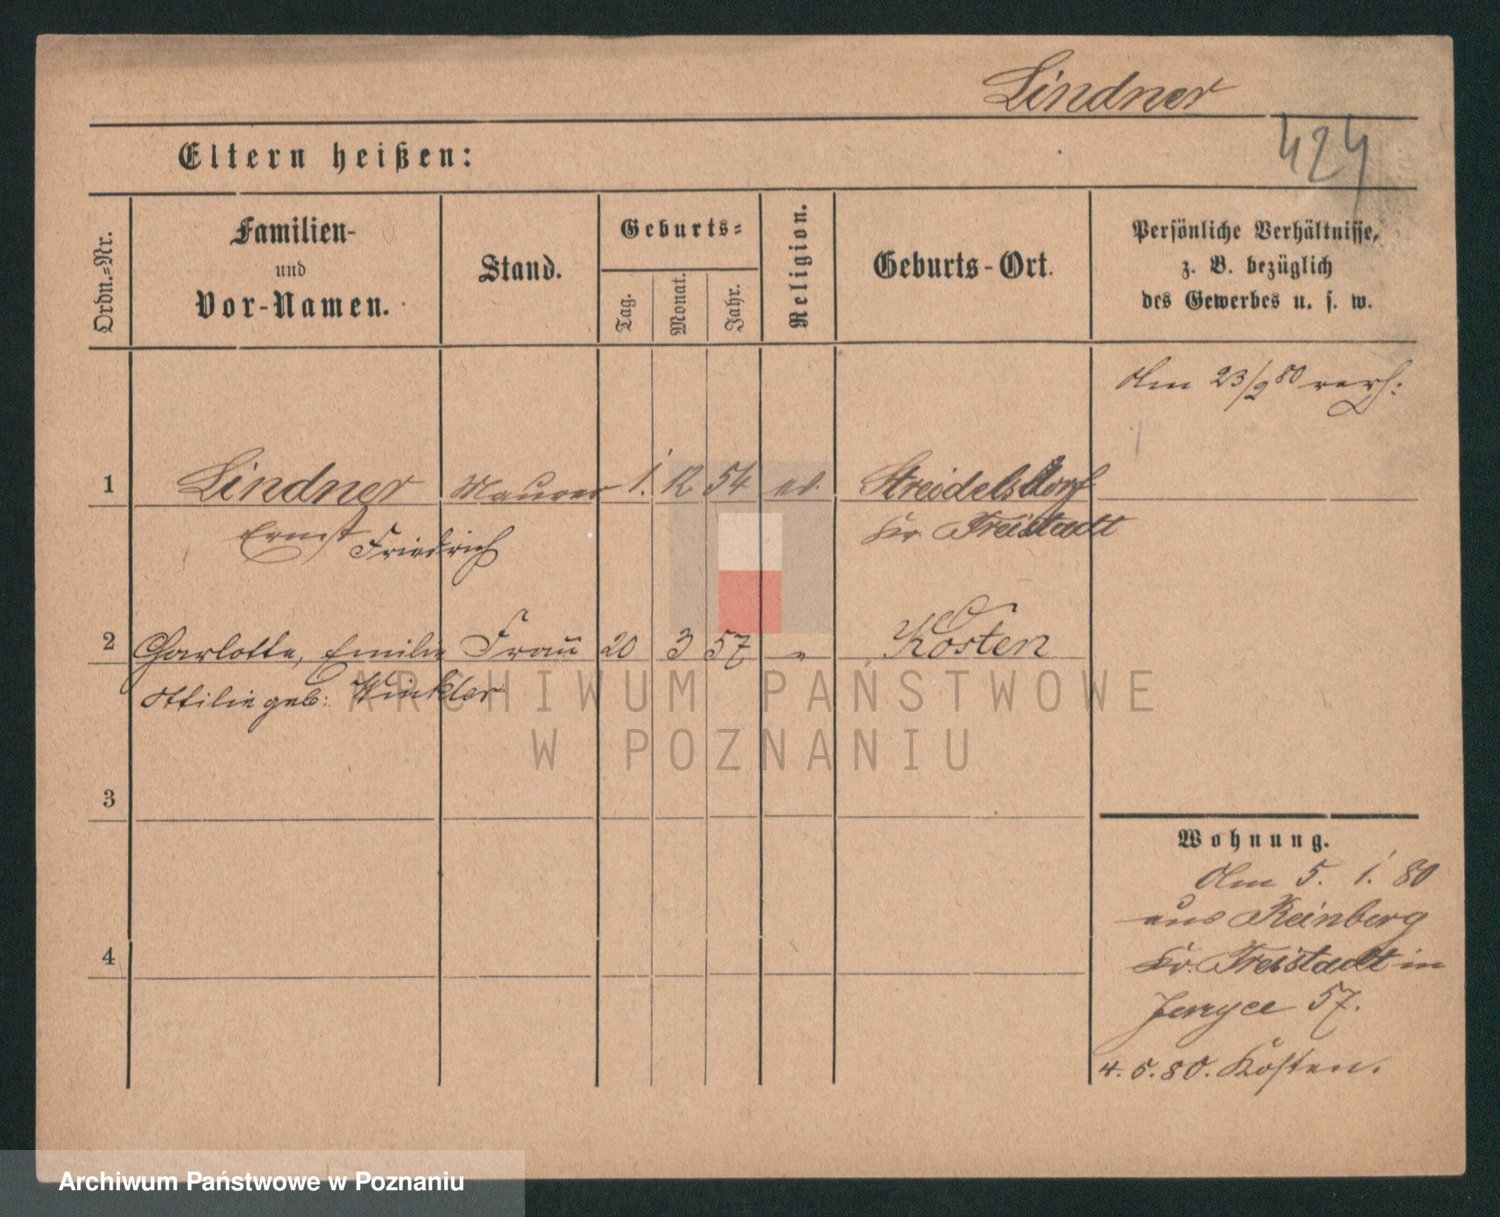 Lindner
424
Eltern heißen:
Ordn.=Nr.
Familien-
und
Vor-Namen.
Stand.
Geburts=
Tag.
Monat.
Jahr.
Religion.
Geburts-Ort.
Persönliche Verhältnisse,
z. B. bezüglich
des Gewerbes u. s. w.
Am 23/2 80 verh:
1 Lindner Maurer 1. 12 54 ev. Streidelsdorf
Ernst Friedrich Kr. Freistadt
2 Charlotte, Emilie Frau 20 3 57 " Kosten
Ottilie geb: Winkler
3
4
Wohnung.
Am 5. 1. 80
aus Reinberg
Kr. Freistadt in
57.
4. 5. 80. Kosten.
ARCHIWUM PAŃSTWOWE
W POZNANIU
Archiwum Państwowe w Poznaniu